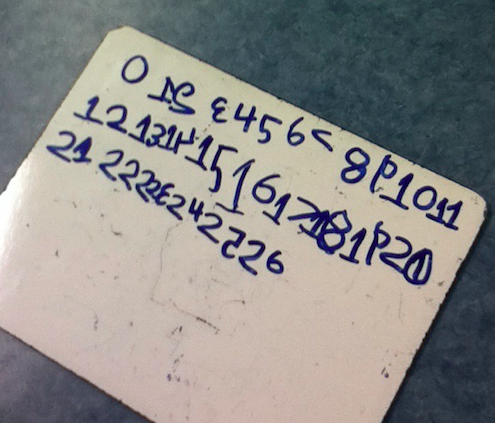 0 12 3 4 5 6 7 8 9 10 11
12 13 14 15 16 17 18 19 20
21 22 23 24 25 26